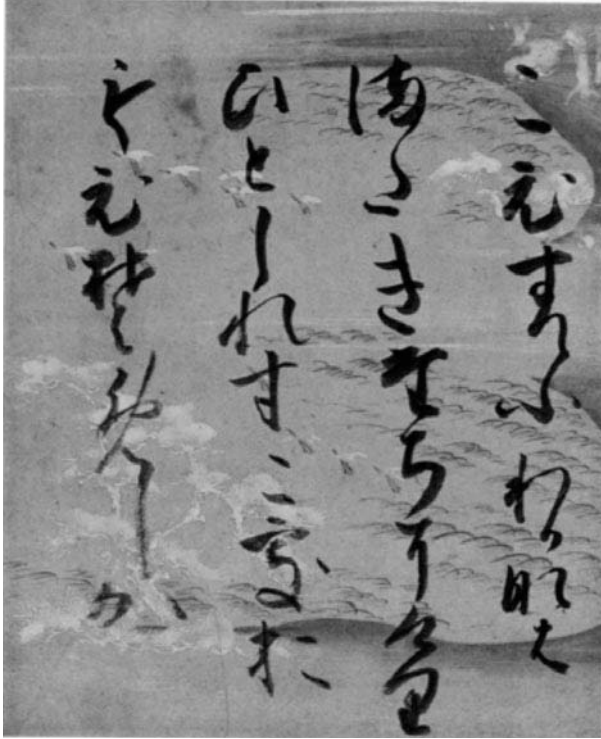 こひすてふわかなは
またきたちにけり
ひとしれすこそお
もひそめしか